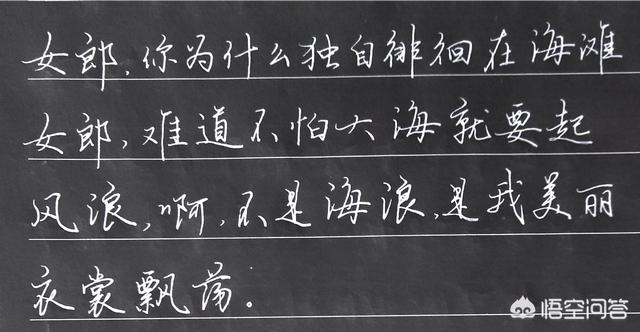 女郎，你为什么独自徘徊在海滩
女郎，难道不怕大海就要起
风浪，啊，不是海浪，是我美丽
衣裳飘荡。
悟空问答